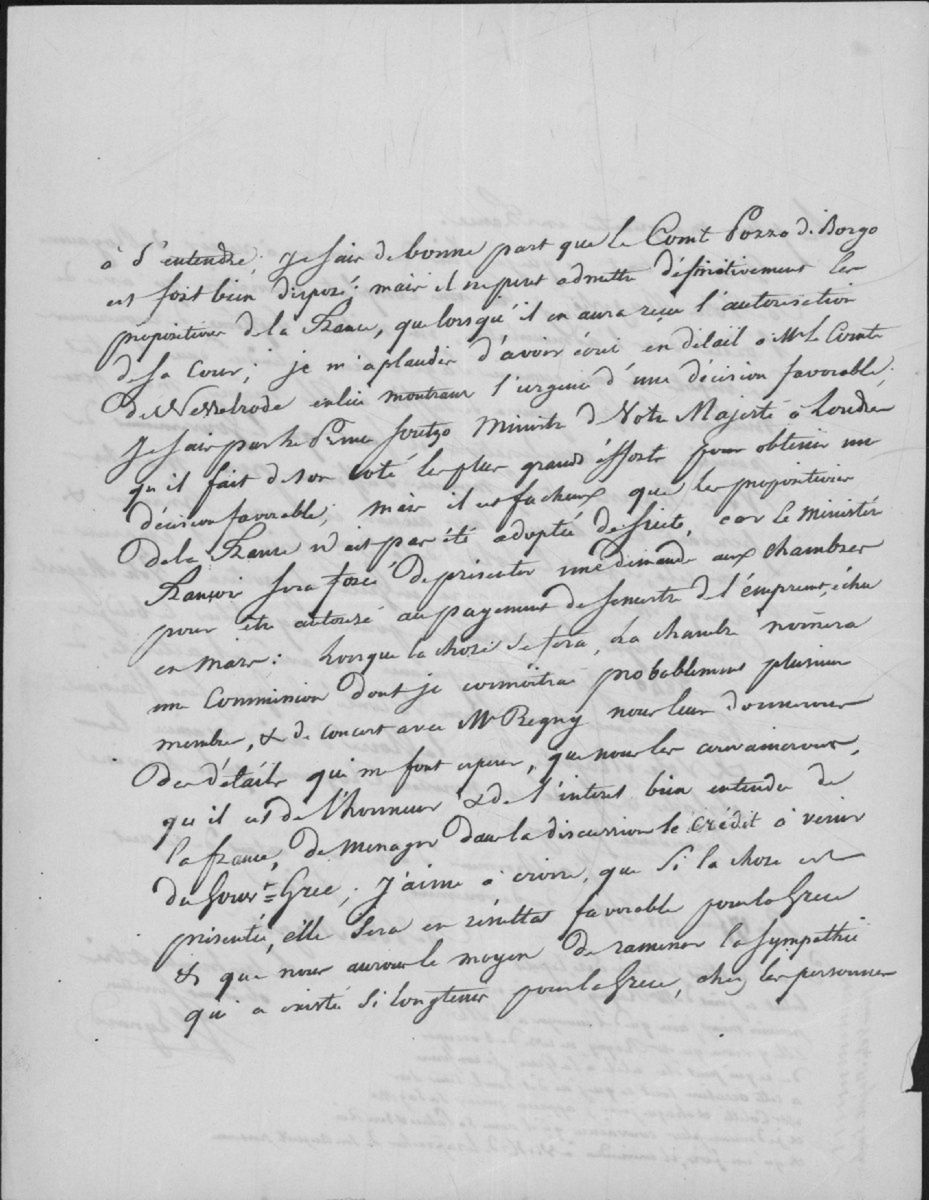 à s'entendre; Je sais de bonne part que le Comt Pozzo di Borgo
est fort bien disposé; mais il ne peut admettre définitivement les
propositions de la France, que lorsqu'il en aura reçu l'autorisation
de sa Cour; je m'aplaudis d'avoir écrit en détail à Mr Le Comte
de Nesselrode en lui montrant l'urgence d'une décision favorable;
Je sais par le Prince Soutzo Ministre de Votre Majesté à Londres
qu'il fait de son coté les plus grands éfforts pour obtenir une
décision favorable; mais il est facheux que les propositions
de la France n'ait pas été adoptée de suite, car le ministère
Français sera forcé de présenter une demande aux chambres
pour être autorisé au payement du semestre de l'emprunt, échu
en Mars: Lorsque la chose se fera, La chambre nomera
une Commission dont je connoitrai probablement plusieurs
membres, & de concert avec Mr Regny nous leur donnerons
des détails qui me font espérer, que nous les convaincrons,
qu'il est de l'honneur & de l'interet bien entendu de
la france, de menager dans la discussion le crédit à venir
du Gouvt Grec; J'aime à croire, que si la chose est
présentée, elle sera en résultat favorable pour la Grèce
& que nous aurons le moyen de ramener la sympathie
qui a existé si longtems pour la Grece, chez les personnes